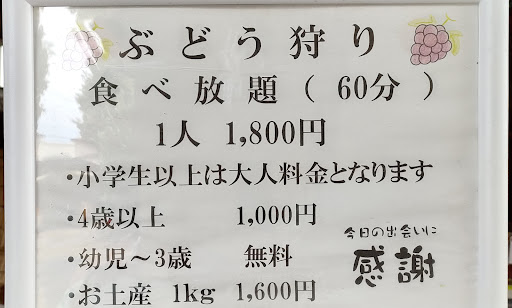 ぶどう狩り
食べ放題(60分)
1人 1,800円
・小学生以上は大人料金となります
・4歳以上 1,000円
・幼児～3歳 無料
今日の出会いに
感謝
・お土産 1kg 1,600円